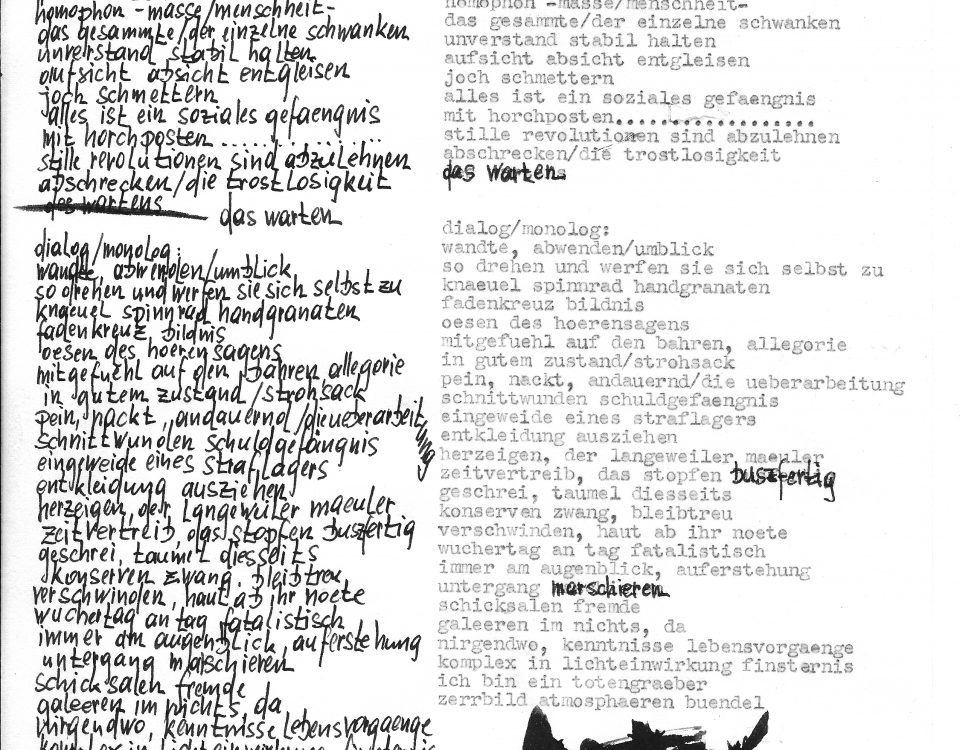 homophon -masse/menschheit-
das gesammte/der einzelne schwanken
unverstand stabil halten
aufsicht absicht entgleisen
joch schmettern
alles ist ein soziales gefaengnis
mit horchposten..................
stille revolutionen sind abzulehnen
abschrecken/die trostlosigkeit
des wartens das warten
dialog/monolog:
wandte, abwenden/umblick
so drehen und werfen sie sich selbst zu
knaeuel spinnrad handgranaten
fadenkreuz bildnis
oesen des hoerensagens
mitgefuehl auf den bahren allegorie
in gutem zustand/strohsack
pein, nackt, andauernd/die ueberarbeitung
schnittwunden schuldgefängnis
eingeweide eines straflagers
entkleidung ausziehen
herzeigen, der langeweiler maeuler
zeitvertreib, das stopfen buszfertig
geschrei, taumel diesseits
konserven zwang, bleibtreu
verschwinden, haut ab ihr noete
wuchertag an tag fatalistisch
immer am augenblick, auferstehung
untergang marschieren
schicksalen fremde
galeeren im nichts, da
nirgendwo, kenntnisse lebensvorgaenge
komplex in lichteinwirkung finsternis
homophon -masse/menschheit-
das gesammte/der einzelne schwanken
unverstand stabil halten
aufsicht absicht entgleisen
joch schmettern
alles ist ein soziales gefaengnis
mit horchposten...................
stille revolutionen sind abzulehnen
abschrecken/die trostlosigkeit
das warten
dialog/monolog:
wandte, abwenden/umblick
so drehen und werfen sie sich selbst zu
knaeuel spinnrad handgranaten
fadenkreuz bildnis
oesen des hoerensagens
mitgefuehl auf den bahren, allegorie
in gutem zustand/strohsack
pein, nackt, andauernd/die ueberarbeitung
schnittwunden schuldgefaengnis
eingeweide eines straflagers
entkleidung ausziehen
herzeigen, der langeweiler maeuler
zeitvertreib, das stopfen buszfertig
geschrei, taumel diesseits
konserven zwang, bleibtreu
verschwinden, haut ab ihr noete
wuchertag an tag fatalistisch
immer am augenblick, auferstehung
untergang marschieren
schicksalen fremde
galeeren im nichts, da
nirgendwo, kenntnisse lebensvorgaenge
komplex in lichteinwirkung finsternis
ich bin ein totengraeber
zerrbild atmosphaeren buendel